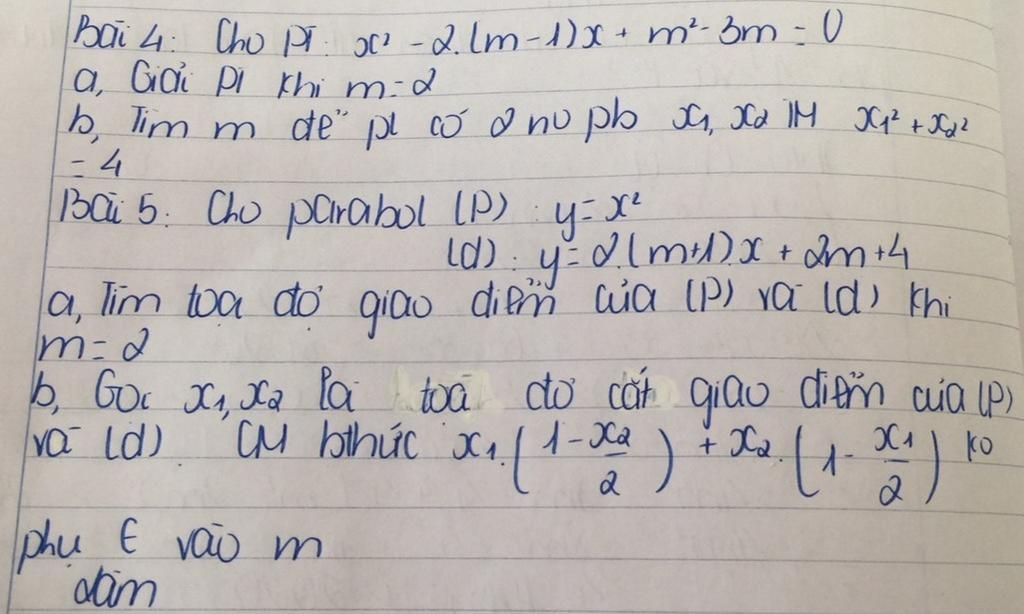 Bài 4: Cho pt: x² - 2.(m-1)x + m² - 3m = 0
a, Giải pt khi m = 2
b, Tìm m để pt có 2 no pb x₁, x₂ TM x₁² + x₂²
= 4
Bài 5: Cho parabol (P): y = x²
(d): y = 2.(m+1).x + 2m + 4
a, Tìm toạ độ giao điểm của (P) và (d) khi
m = 2
b, Gọi x₁, x₂ là toạ độ các giao điểm của (P)
và (d). CM bthức x₁.(1 - x₂/2) + x₂.(1 - x₁/2) ko
phụ ∈ vào m